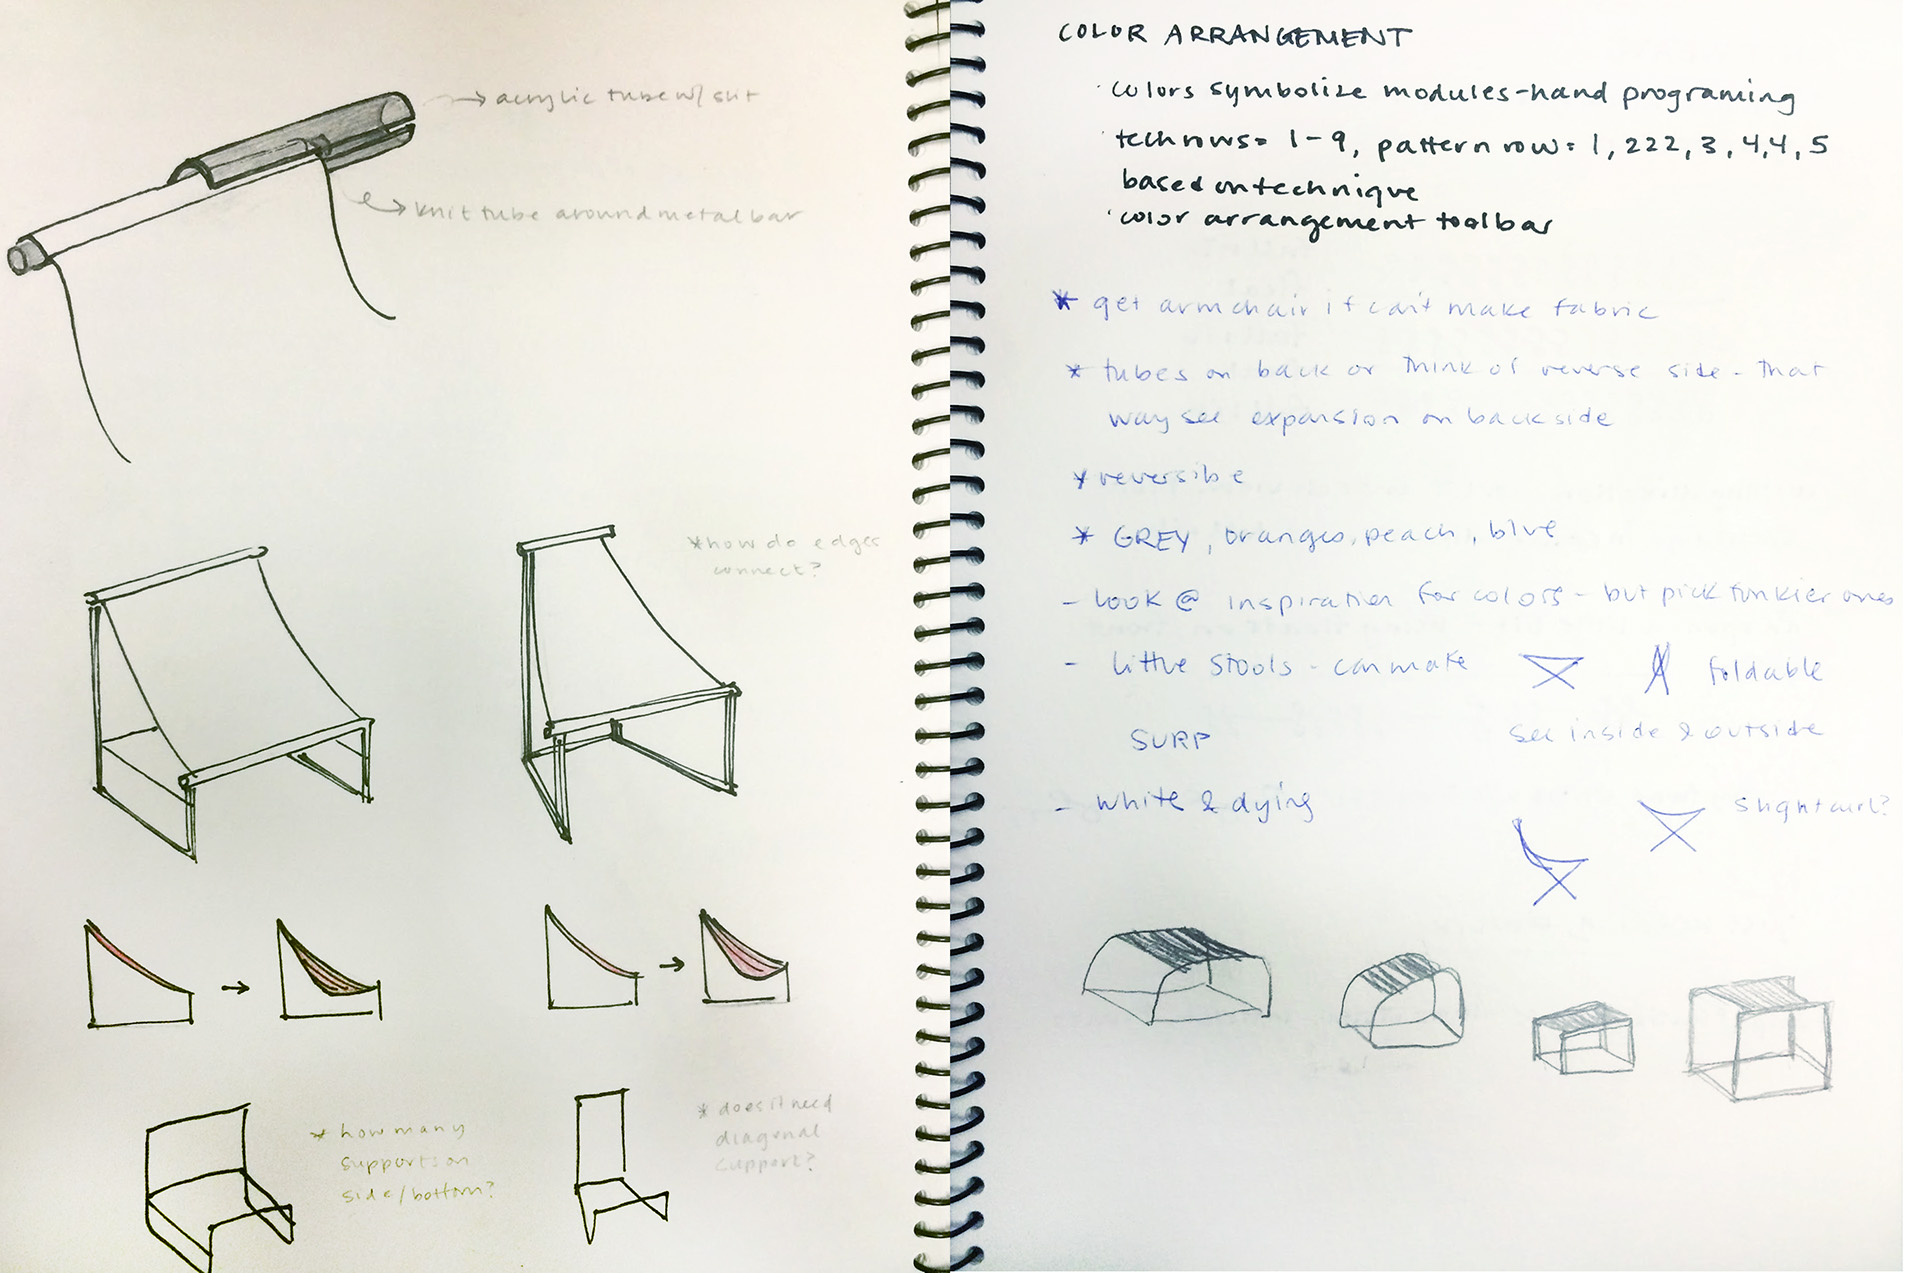 → acrylic tube w/ slit
→ knit tube around metal bar
*how do edges
connect?
* how many
supports on
side/bottom?
* does it need
diagonal
support?
COLOR ARRANGEMENT
· colors symbolize modules-hand programing
· tech rows= 1-9, pattern row= 1, 222, 3, 4,4, 5
based on technique
· color arrangement toolbar
* get armchair if can't make fabric
* tubes on back or think of reverse side - that
way see expansion on backside
* reversible
* GREY, oranges, peach, blue
- look @ inspiration for colors - but pick funkier ones
- little stools - can make
foldable
SURP
see inside & outside
- white & dying
slight curl?